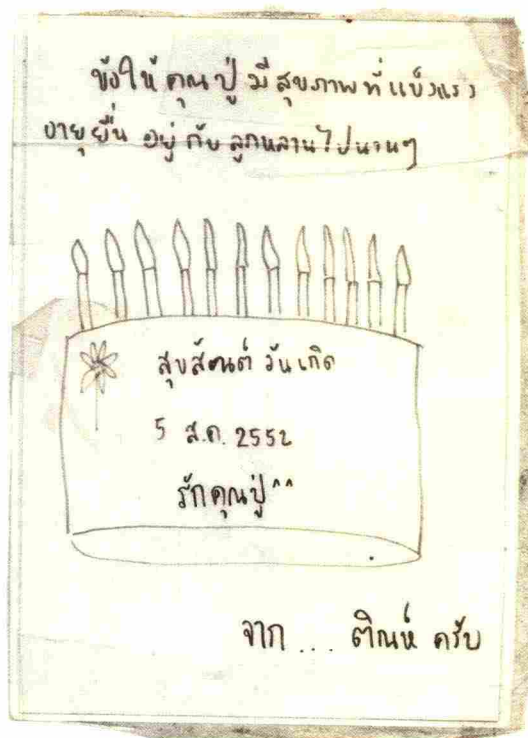 ขอให้คุณปู่มีสุขภาพที่แข็งแรง
อายุยืน อยู่กับลูกหลานไปนานๆ
สุขสันต์วันเกิด
5 ส.ค. 2552
รักคุณปู่ ^^
จาก ... ติณห์ ครับ